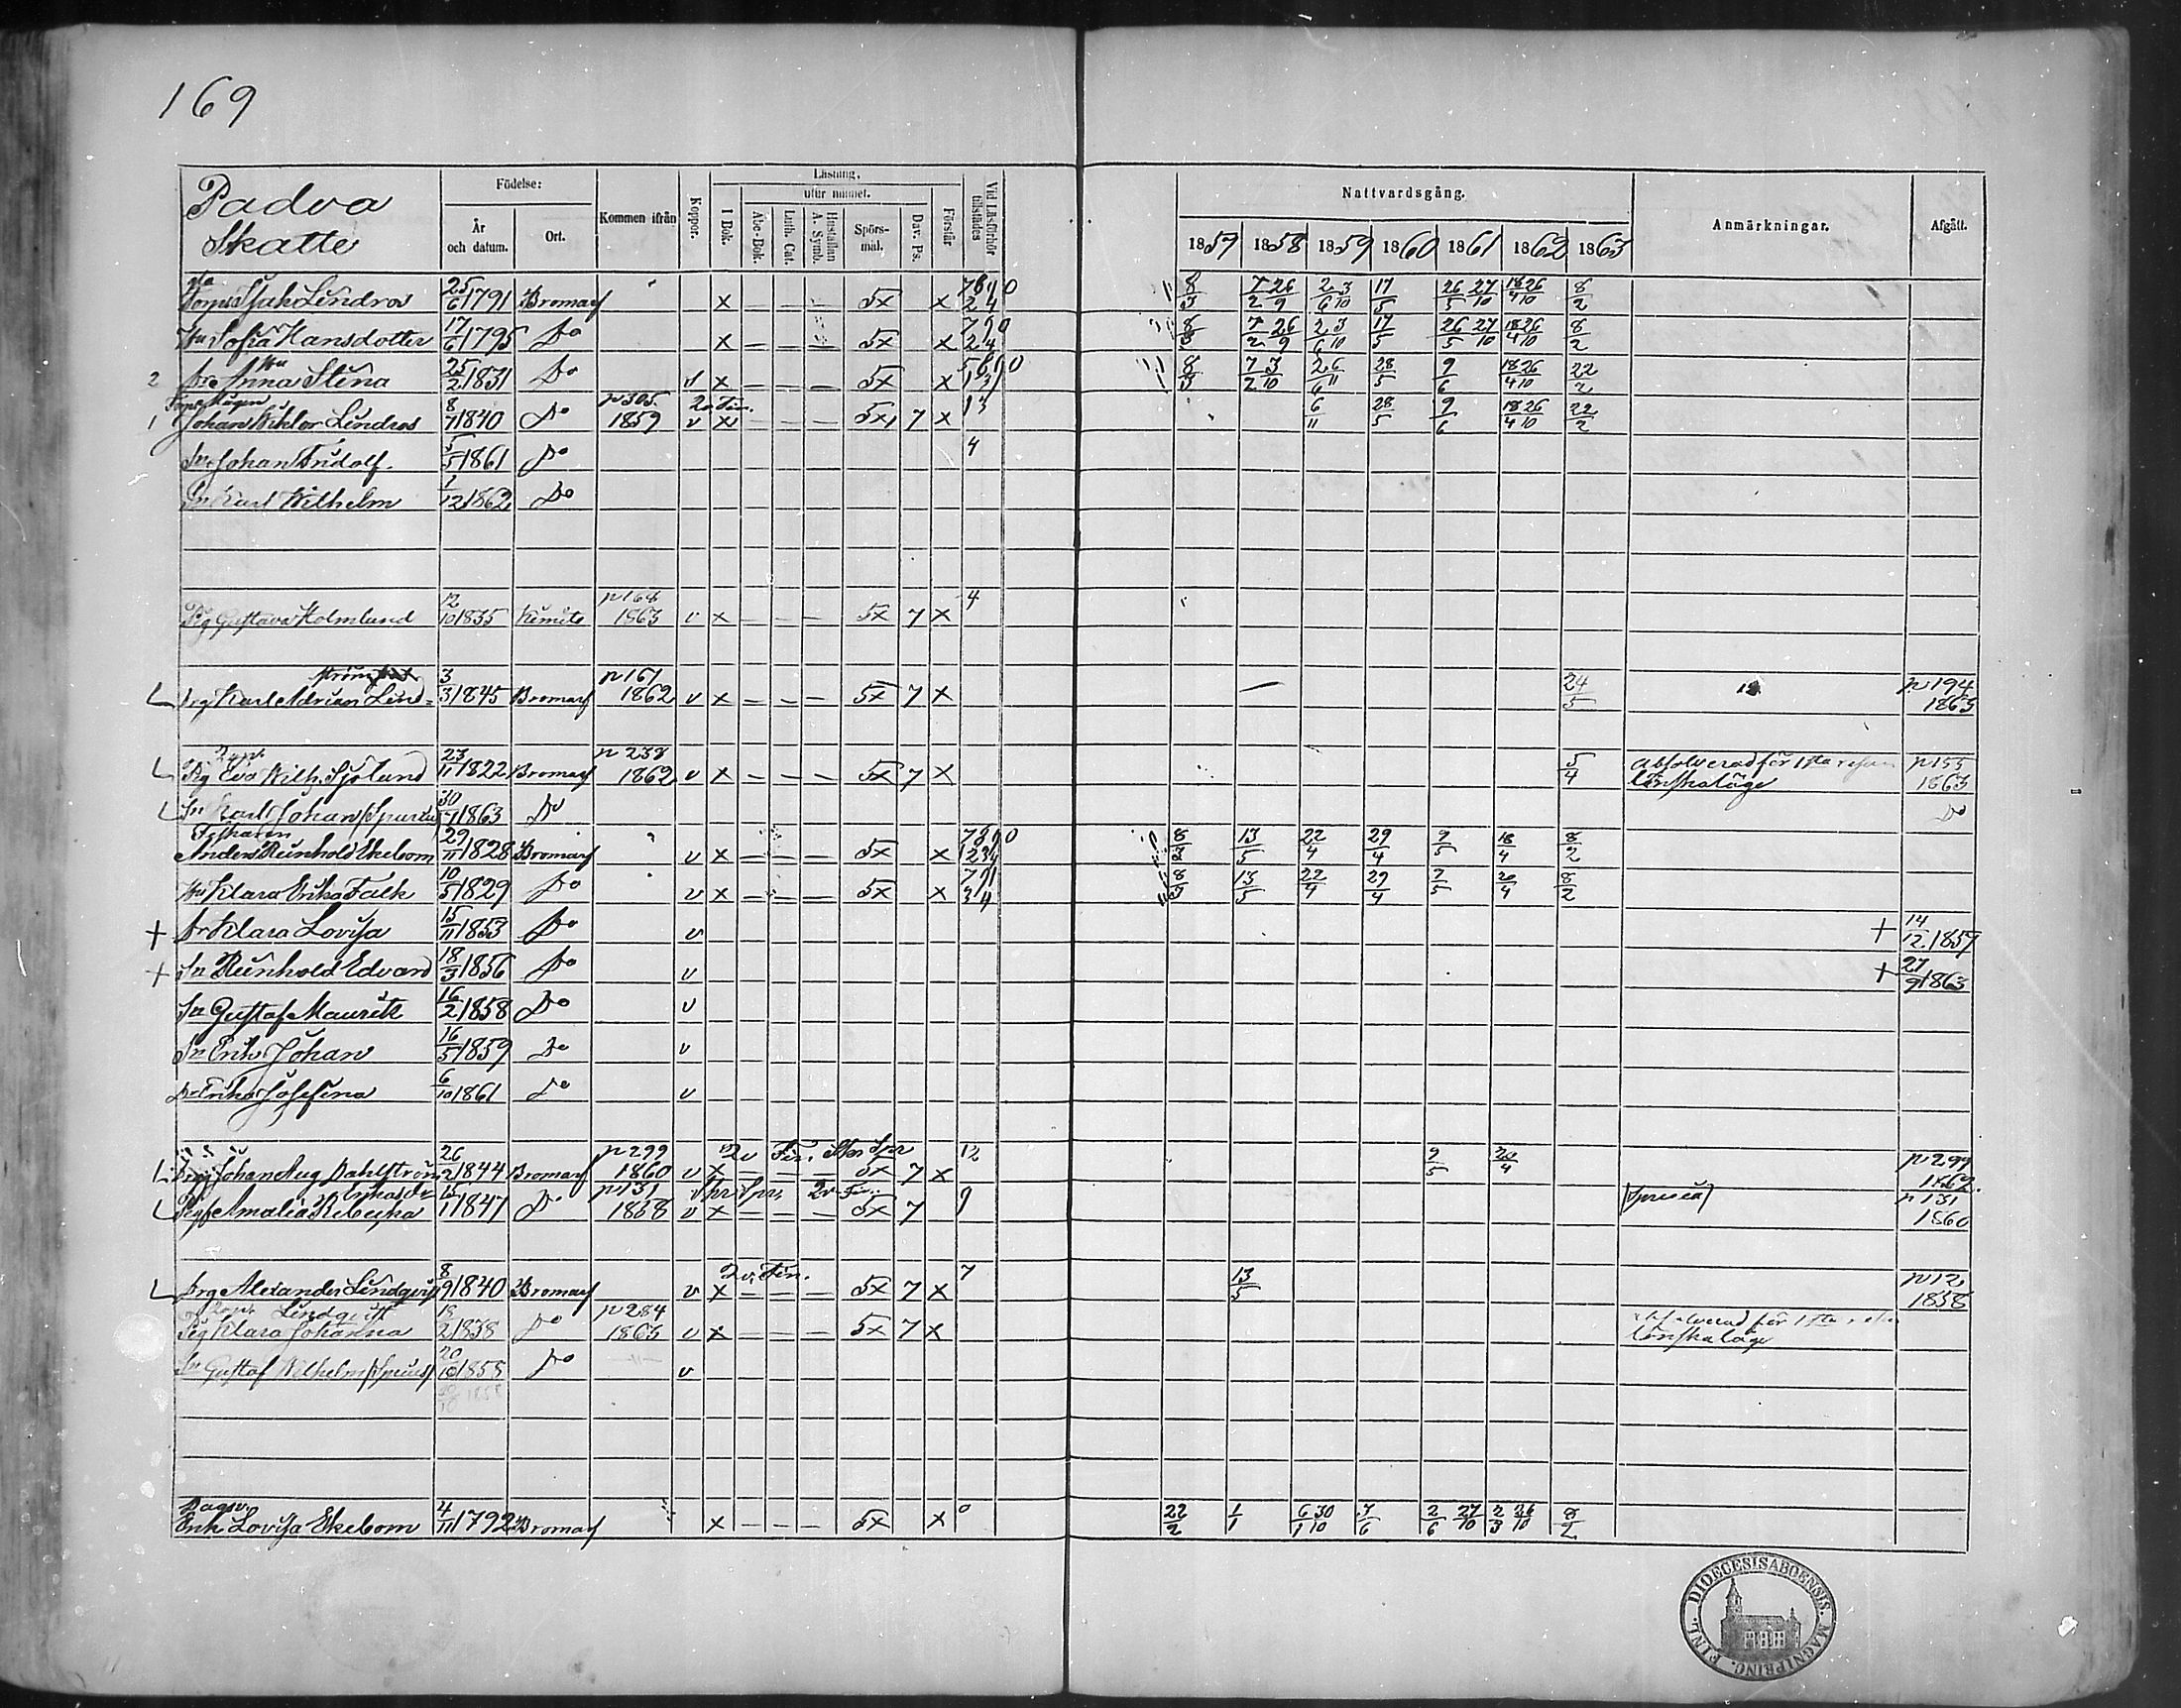 169
Padva
Skatte
Födelse:
År och datum.
Ort.
Kommen ifrån
Koppor.
Läsning,
utur minnet.
I Bok.
Abc-Bok.
Luth. Cat.
Hustaflan A. Symb.
Spörsmål.
Dav. Ps.
Förstår
Vid Läsförhör tillstädes
Nattvardsgång.
1857 1858 1859 1860 1861 1862 1863
Anmärkningar.
Afgått.
Lindros 25/6 1791 Bromarf x — — — 5x x 8/3 7/2 26/9 2/6 3/10 17/5 26/5 27/10 18/4 26/10 8/2
Hu Sofia Hansdotter 17/6 1795 Do x — — — 5x x 8/3 7/2 26/9 2/6 3/10 17/5 26/5 27/10 18/4 26/10 8/2
2 Dr Anna Stina 25/2 1831 Do v x — — — 5x x 8/3 7/2 3/10 2/6 6/11 28/5 9/6 18/4 26/10 22/2
Torp. Mågen p 305
1 Johan Wiktor Lindros 1840 Do 1859 v x — — — 5x 7 x 13 6/11 28/5 9/6 18/4 26/10 22/2
Sn Johan Fridolf. 5/5 1861 Do 4
Sn Karl Wilhelm 1/12 1862 Do
Pig Gustava Holmlund 12/10 1835 Kimito p 168 1863 v x — — — 5x 7 x 4
Drg Karl Adrian Lind= ström 3/3 1845 Bromarf p 161 1862 v x — — — 5x 7 x 24/5 p 194 1863
Pig Eva Wilh. Sjölund 23/11 1822 Bromarf p 238 1862 v x — — — 5x 7 x 5/4 absolverad för 1sta resan lönskaläge p 155 1863
Sn Karl Johan 1863 Do Do
Anders Reinhold Ekebom 29/11 1828 Bromarf v x — — — 5x x 8/3 13/5 22/4 29/4 7/5 18/4 8/2
Hu Klara Erika Falk 10/5 1829 Do v x — — — 5x x 8/3 13/5 22/4 29/4 7/5 20/4 8/2
+ Dr Klara Lovisa 15/11 1853 Do v + 14/12 1857
+ Sn Reinhold Edvard 18/3 1856 Do v + 27/9 1863
Sn Gustaf Mauritz 16/2 1858 Do v
Sn Erik Johan 16/5 1859 Do v
Dr Erika Josefina 6/10 1861 Do v
Drg Johan Aug Dahlström 26/2 1844 Bromarf p 299 1860 v x — — — 5x 7 x 12 9/5 20/4 p 299 1862.
Amalia Rebecka 15/1 1847 Do p 131 1858 v x — — — 5x 7 9 p 131 1860
Drg Alexander Lindqvist 8/9 1840 Bromarf v x — — — 5x 7 x 7 13/5 p 12 1858
Lindqvist
Pig Klara Johanna 18/2 1838 Do p 284 1863 v x — — — 5x 7 x absolverad för 1sta resan lönskaläge
Sn Gustaf Wilhelm 20/10 1858 Do v
Enk. Lovisa Ekebom 4/11 1792 Bromarf x — — — 5x x 0 22/2 1/1 6/1 30/10 2/6 27/10 8/2
FINL. DIOECESIS ABOENSIS. MAGNI PRINC.